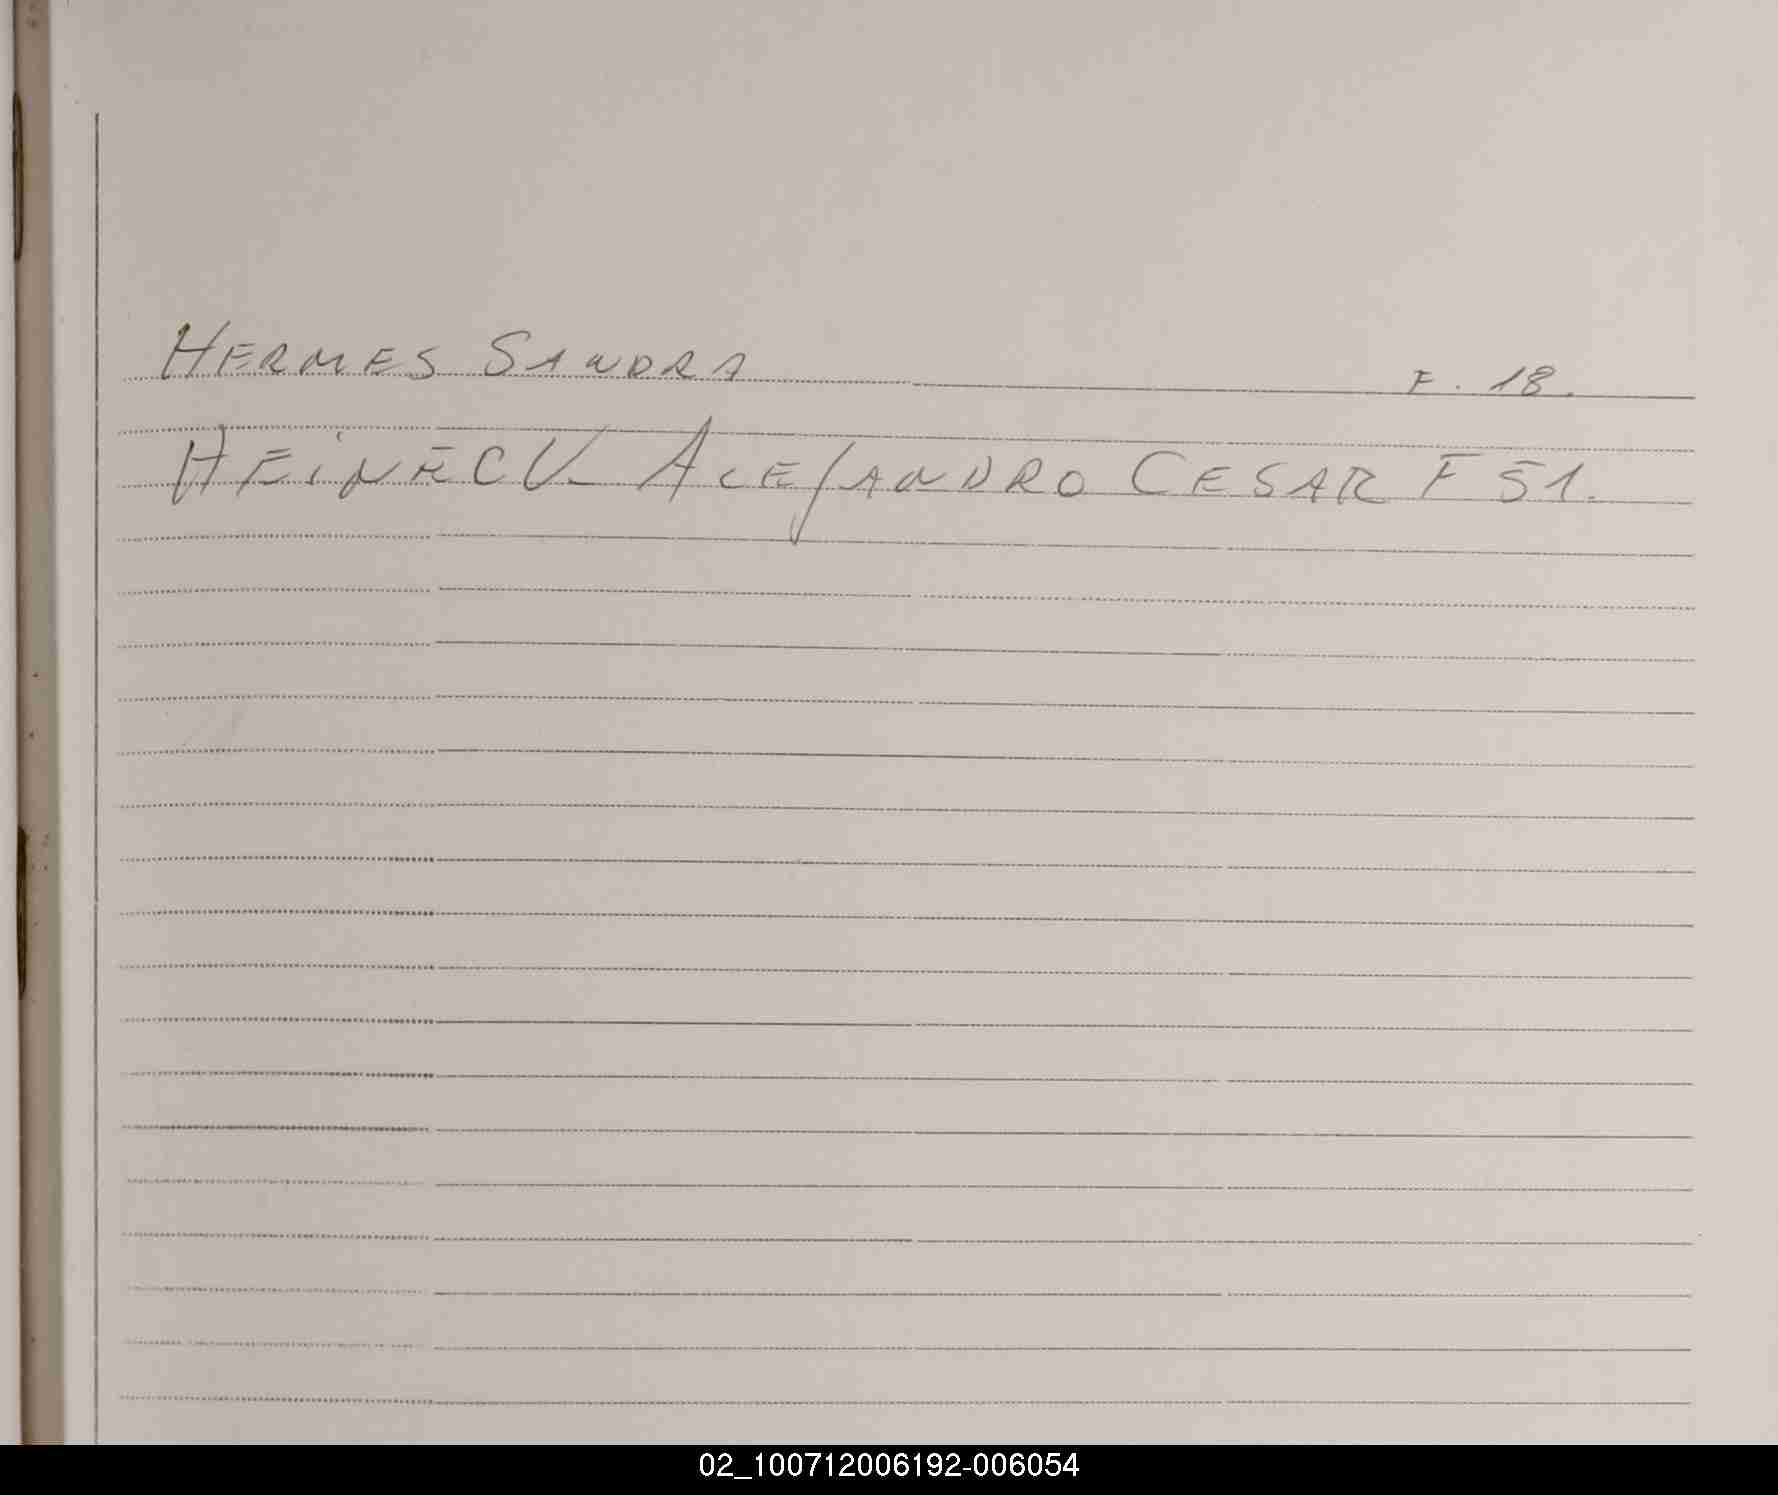 HERMES SANDRA F. 18.
HEiNECK ALEJANDRO CESAR F 51.
02_100712006192-006054